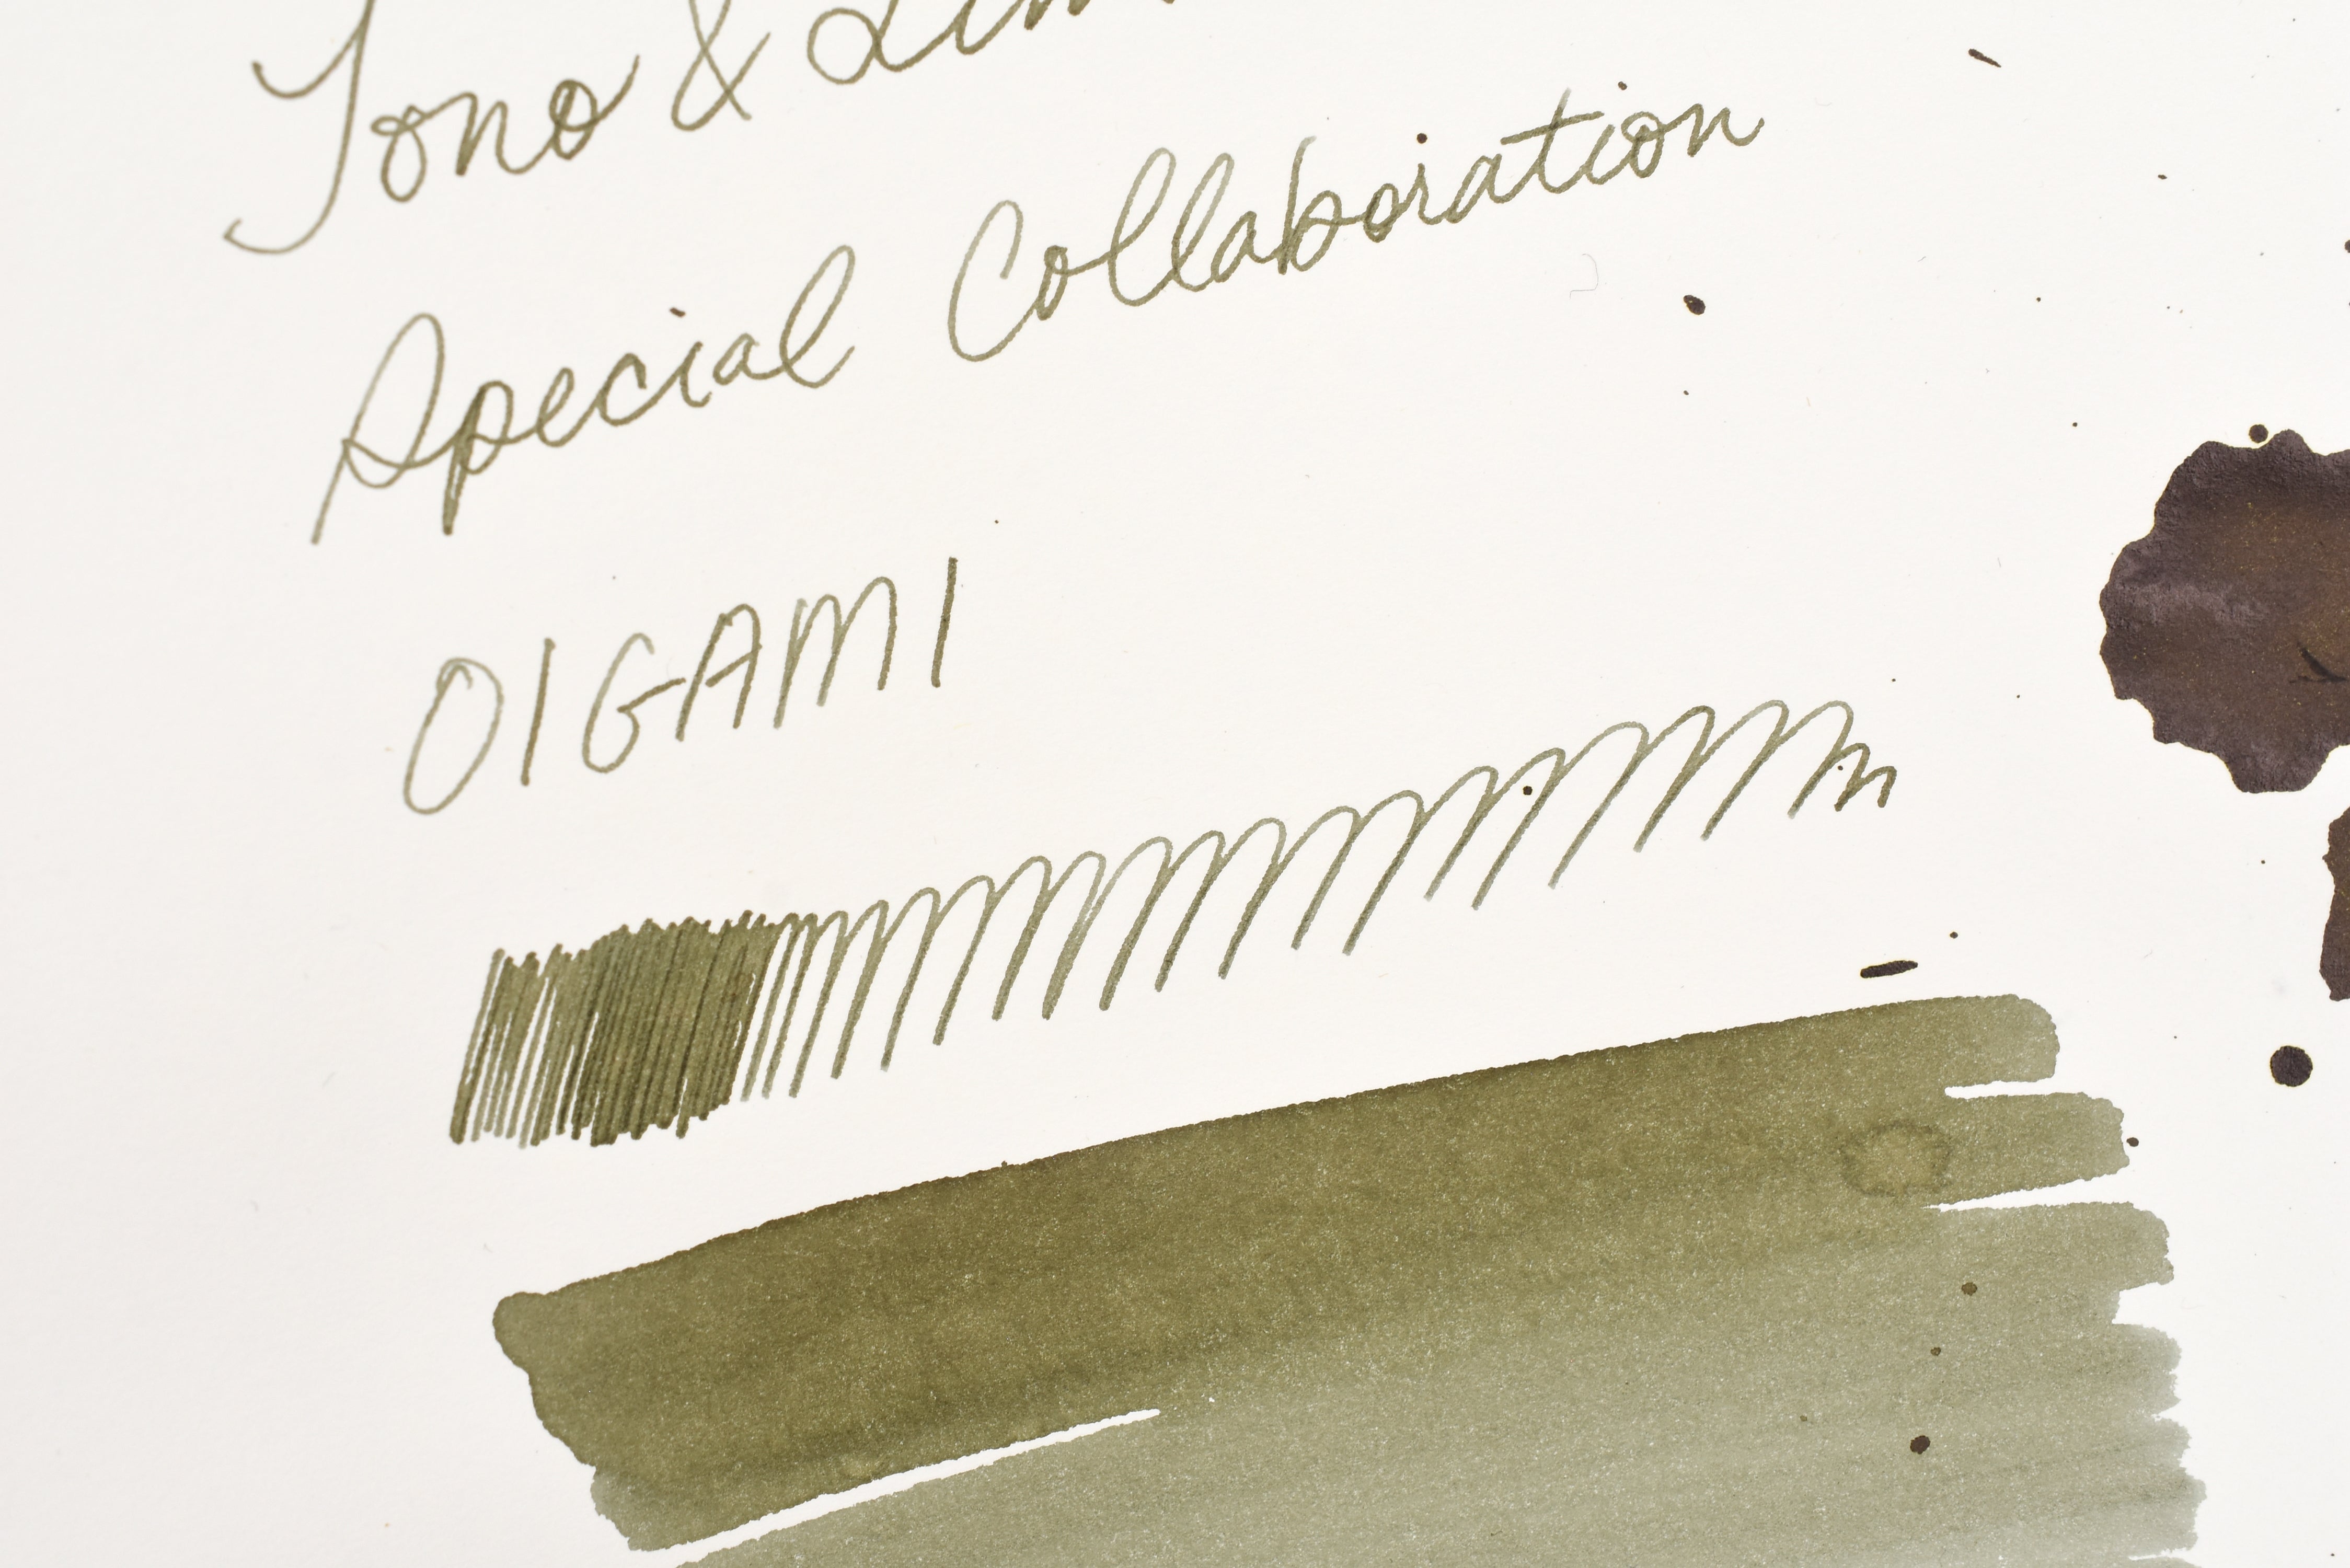 Tono &
Special Collaboration
OIGAMI